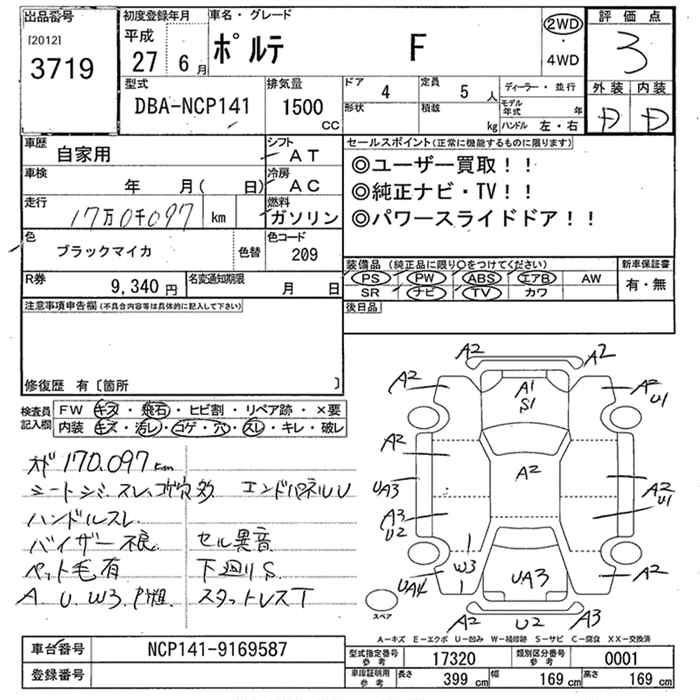 出品番号 初度登録年月 車名・グレード 評価点
[2012] 平成 2WD
3719 27 6月 ポルテ F ・ 3
4WD
型式 排気量 ドア 4 定員 5 人 ディーラー・並行 外装 内装
DBA-NCP141 1500 cc 形状 積載 kg モデル年式 年 D D
ハンドル 左・右
車歴 自家用 シフト AT セールスポイント(正常に機能するものに限ります)
車検 年 月( 日) 冷房 AC ◎ユーザー買取！！
走行 17万0千097 km 燃料 ガソリン ◎純正ナビ・TV！！
◎パワースライドドア！！
色 ブラックマイカ 色替 色コード 209
装備品(純正品に限り○をつけてください) 新車保証書
R券 9,340円 名変通知期限 月 日 PS PW ABS エアB AW 有・無
SR ナビ TV カワ
注意事項申告欄(不具合内容等は具体的に記入して下さい) 後日品
修復歴 有〔箇所 〕
検査員記入欄 FW キズ・飛石・ヒビ割・リペア跡・×要
内装 キズ・汚レ・コゲ・穴・スレ・キレ・破レ
メータ 170,097km
シートシミ、スレ、コゲ穴多 エンドパネルU
ハンドルスレ
バイザー不良 セル異音
ペット毛有 下廻りS
A. U. W3. スタットレスT
A2 A2
A2 A1 A2
S1 U1
A2 A2
UA3 A2
U1
A3
U2
W3
UA4 UA3 A2
スペア
A2 U2 A3
A－キズ E－エクボ U－凹み W－補修跡 S－サビ C－腐食 XX－交換済
車台番号 NCP141-9169587 型式指定番号 参考 17320 類別区分番号 参考 0001
登録番号 車庫証明用 参考 長さ 399 cm 幅 169 cm 高さ 169 cm